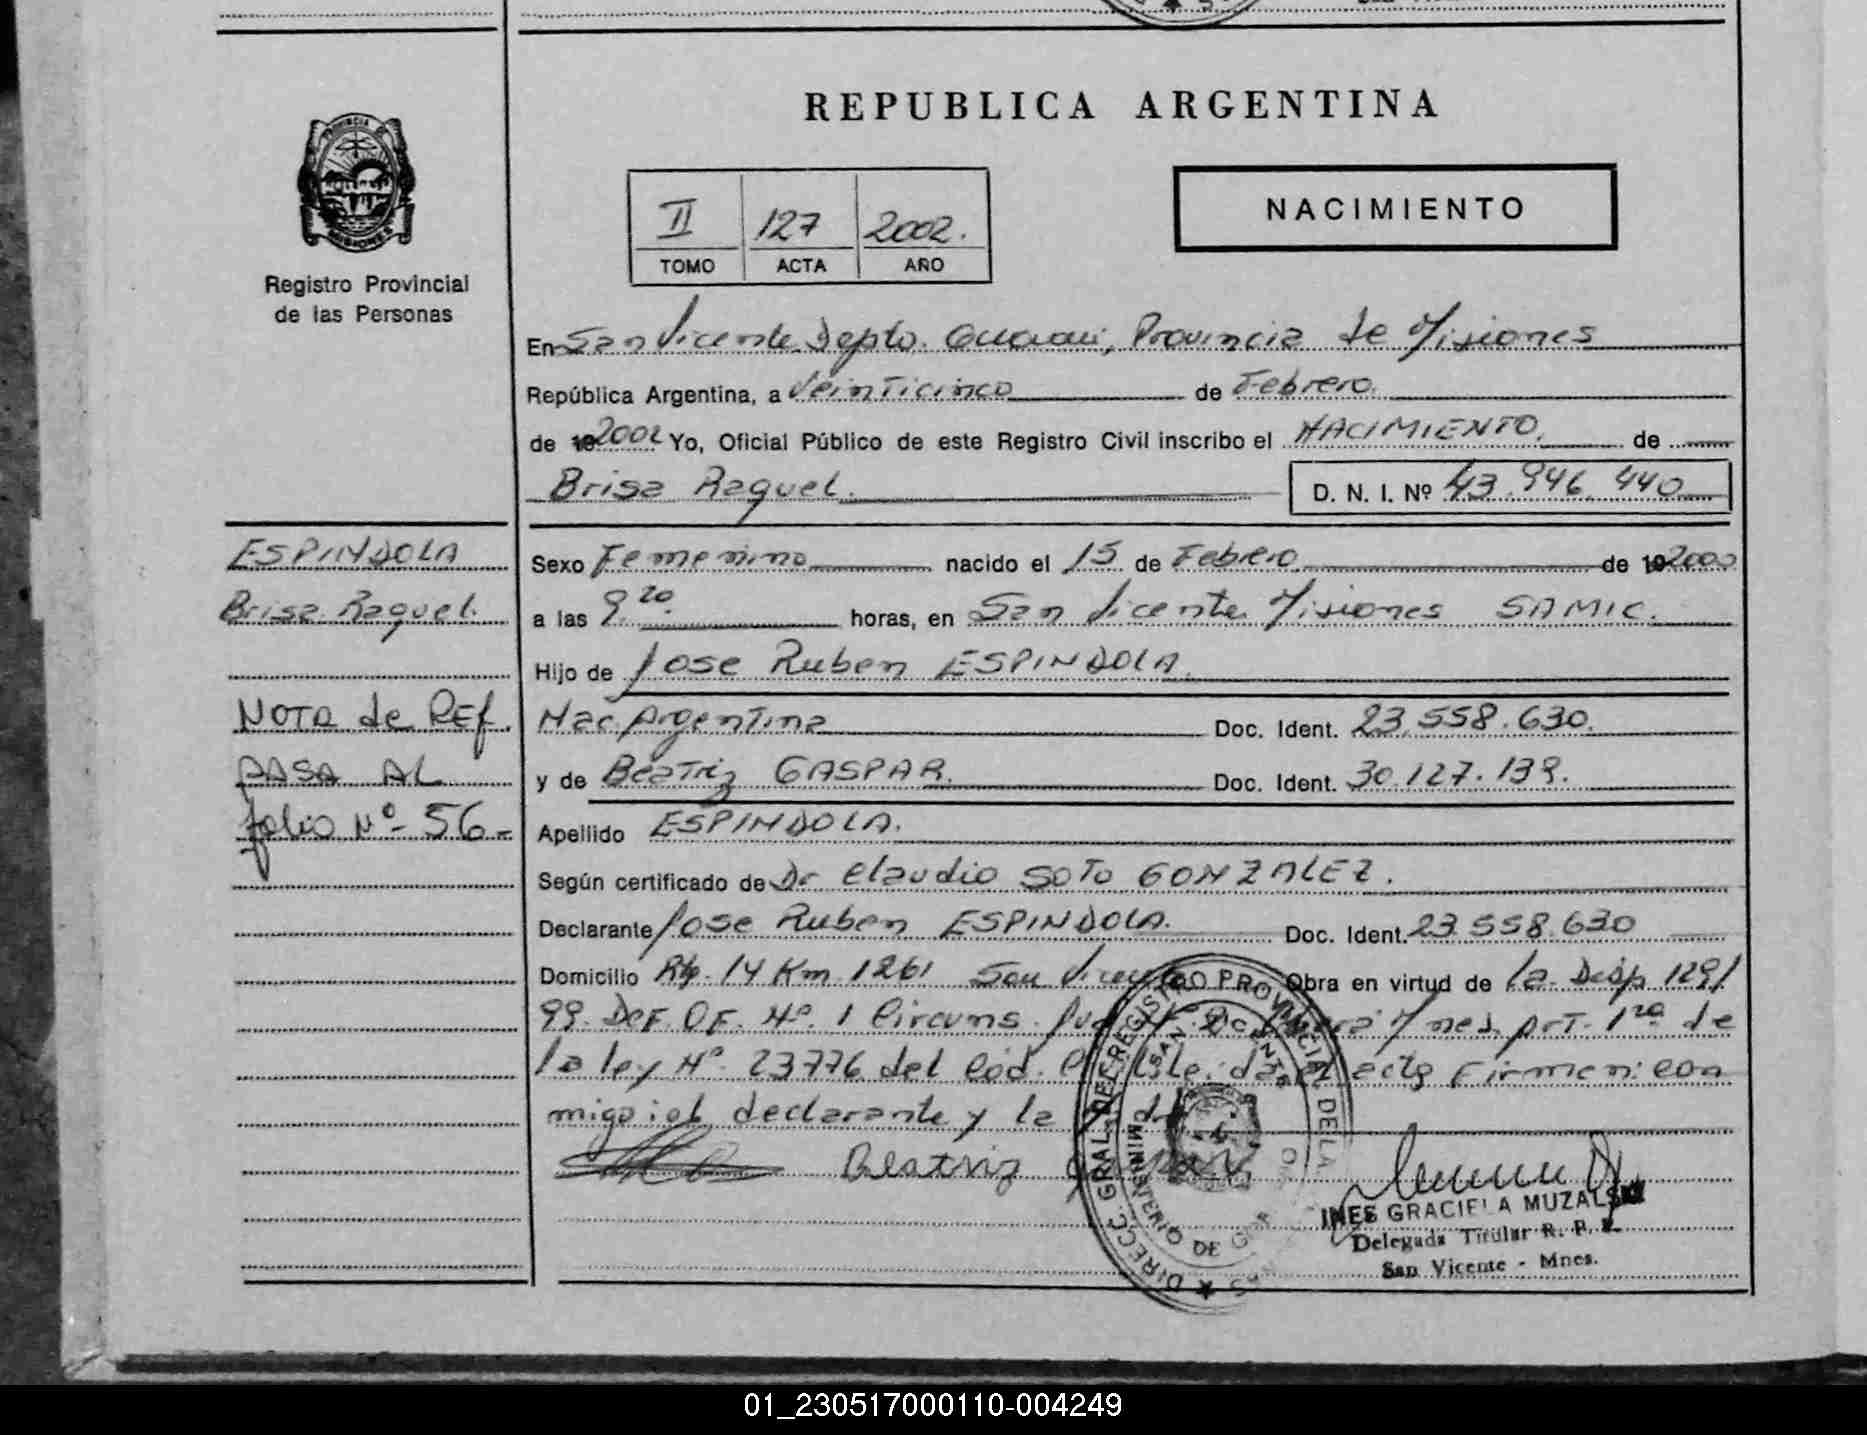 REPUBLICA ARGENTINA
PROVINCIA DE
MISIONES
Registro Provincial
de las Personas
II 127 2002.
TOMO ACTA AÑO
NACIMIENTO
En San Vicente Depto. Guarani, Provincia de Misiones
República Argentina, a Veinticinco de Febrero.
de 19 2002 Yo, Oficial Público de este Registro Civil inscribo el NACIMIENTO. de
Brisa Raquel. D. N. I. Nº 43.946.440
ESPINDOLA
Brisa Raquel.
NOTA de REf.
PASA AL
folio Nº- 56-
Sexo Femenino nacido el 15 de Febrero de 19 2000
a las 9.20 horas, en San Vicente Misiones SAMIC.
Hijo de Jose Ruben ESPINDOLA.
Nac. Argentina Doc. Ident. 23.558.630.
y de Beatriz GASPAR. Doc. Ident. 30.127.139.
Apellido ESPINDOLA.
Según certificado de Dr Claudio SOTO GONZALEZ.
Declarante Jose Ruben ESPINDOLA. Doc. Ident. 23.558.630
Domicilio Rta. 14 Km. 1261 San Vicente Obra en virtud de la Disp. 129/
99. DEF. OF. Nº. 1 Circuns. Jud. Mnes. ArT. 1ra de
la ley Nº. 23776 del Cód. acta Firman: con
migo: el declarante y la
Beatriz
DIRECC. GRAL. DEL REGISTRO PROVINCIAL DE LA
SAN VICENTE
MINISTERIO DE
INES GRACIELA MUZALSKI
Delegada Titular R. P. P.
San Vicente - Mnes.
01_230517000110-004249